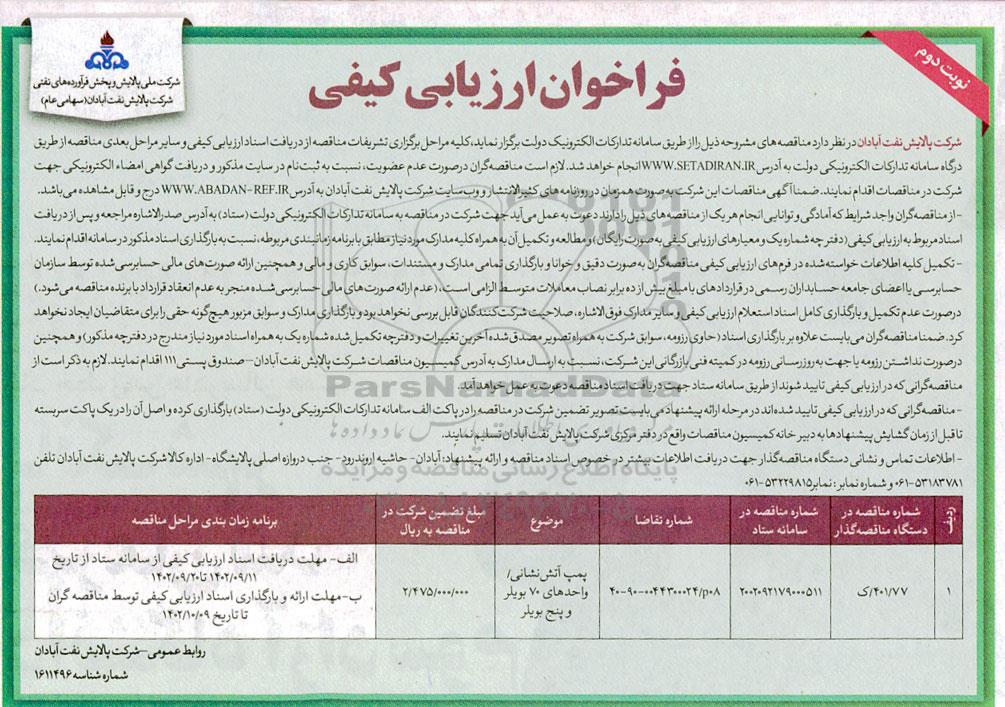 نوبت دوم
شرکت ملی پالایش و پخش فرآورده‌های نفتی
شرکت پالایش نفت آبادان (سهامی عام)
فراخوان ارزیابی کیفی
شرکت پالایش نفت آبادان در نظر دارد مناقصه های مشروحه ذیل را از طریق سامانه تدارکات الکترونیک دولت برگزار نماید، کلیه مراحل برگزاری تشریفات مناقصه از دریافت اسناد ارزیابی کیفی و سایر مراحل بعدی مناقصه از طریق
درگاه سامانه تدارکات الکترونیکی دولت به آدرس WWW.SETADIRAN.IR انجام خواهد شد. لازم است مناقصه گران درصورت عدم عضویت، نسبت به ثبت نام در سایت مذکور و دریافت گواهی امضاء الکترونیکی جهت
شرکت در مناقصات اقدام نمایند. ضمنا آگهی مناقصات این شرکت به صورت همزمان در روزنامه های کثیرالانتشار و وب سایت شرکت پالایش نفت آبادان به آدرس WWW.ABADAN-REF.IR درج و قابل مشاهده می باشد.
- از مناقصه گران واجد شرایط که آمادگی و توانایی انجام هر یک از مناقصه های ذیل را دارند دعوت به عمل می آید جهت شرکت در مناقصه به سامانه تدارکات الکترونیکی دولت (ستاد) به آدرس صدرالاشاره مراجعه و پس از دریافت
اسناد مربوط به ارزیابی کیفی (دفترچه شماره یک و معیارهای ارزیابی کیفی به صورت رایگان) و مطالعه و تکمیل آن به همراه کلیه مدارک مورد نیاز مطابق با برنامه زمانبندی مربوطه، نسبت به بارگذاری اسناد مذکور در سامانه اقدام نمایند.
- تکمیل کلیه اطلاعات خواسته شده در فرم های ارزیابی کیفی مناقصه گران به صورت دقیق و خوانا و بارگذاری تمامی مدارک و مستندات، سوابق کاری و مالی و همچنین ارائه صورت های مالی حسابرسی شده توسط سازمان
حسابرسی یا اعضای جامعه حسابداران رسمی در قراردادهای با مبلغ بیش از ده برابر نصاب معاملات متوسط الزامی است، (عدم ارائه صورت های مالی حسابرسی شده منجر به عدم انعقاد قرارداد با برنده مناقصه می شود.)
درصورت عدم تکمیل و بارگذاری کامل اسناد استعلام ارزیابی کیفی و سایر مدارک فوق الاشاره، صلاحیت شرکت کنندگان قابل بررسی نخواهد بود و بارگذاری مدارک و سوابق مزبور هیچ گونه حقی را برای متقاضیان ایجاد نخواهد
کرد. ضمنا مناقصه گران می بایست علاوه بر بارگذاری اسناد (حاوی رزومه، سوابق شرکت به همراه تصویر مصدق شده آخرین تغییرات و دفترچه تکمیل شده شماره یک به همراه اسناد مورد نیاز مندرج در دفترچه مذکور) و همچنین
درصورت نداشتن رزومه یا جهت به روزرسانی رزومه در کمیته فنی بازرگانی این شرکت، نسبت به ارسال مدارک به آدرس کمیسیون مناقصات شرکت پالایش نفت آبادان – صندوق پستی ۱۱۱ اقدام نمایند. لازم به ذکر است از
مناقصه گرانی که در ارزیابی کیفی تایید شوند از طریق سامانه ستاد جهت دریافت اسناد مناقصه دعوت به عمل خواهد آمد.
- مناقصه گرانی که در ارزیابی کیفی تایید شده اند در مرحله ارائه پیشنهاد می بایست تصویر تضمین شرکت در مناقصه را در پاکت الف سامانه تدارکات الکترونیکی دولت (ستاد) بارگذاری کرده و اصل آن را در یک پاکت سربسته
تا قبل از زمان گشایش پیشنهادها به دبیرخانه کمیسیون مناقصات واقع در دفتر مرکزی شرکت پالایش نفت آبادان تسلیم نمایند.
- اطلاعات تماس و نشانی دستگاه مناقصه گذار جهت دریافت اطلاعات بیشتر در خصوص اسناد مناقصه و ارائه پیشنهاد: آبادان- حاشیه اروندرود- جنب دروازه اصلی پالایشگاه- اداره کالا شرکت پالایش نفت آبادان تلفن
۰۶۱-۵۳۱۸۳۷۸۱ و شماره نمابر: نمابر ۰۶۱-۵۳۲۲۹۸۱۵
ParsNamadData
پایگاه اطلاع رسانی مناقصه و مزایده
ردیف | شماره مناقصه در دستگاه مناقصه‌گذار | شماره مناقصه در سامانه ستاد | شماره تقاضا | موضوع | مبلغ تضمین شرکت در مناقصه به ریال | برنامه زمان بندی مراحل مناقصه
۱ | ۴۰۱/۷۷/ک | ۲۰۰۲۰۹۲۱۷۹۰۰۰۵۱۱ | ۴۰-۹۰-۰۰۴۴۳۰۰۰۲۴/p۰۸ | پمپ آتش نشانی/ واحدهای ۷۰ بویلر و پنج بویلر | ۲/۴۷۵/۰۰۰/۰۰۰ | الف- مهلت دریافت اسناد ارزیابی کیفی از سامانه ستاد از تاریخ
۱۴۰۲/۰۹/۱۱ تا ۱۴۰۲/۰۹/۲۰
ب- مهلت ارائه و بارگذاری اسناد ارزیابی کیفی توسط مناقصه گران
تا تاریخ ۱۴۰۲/۱۰/۰۹
روابط عمومی – شرکت پالایش نفت آبادان
شماره شناسه ۱۶۱۱۴۹۶